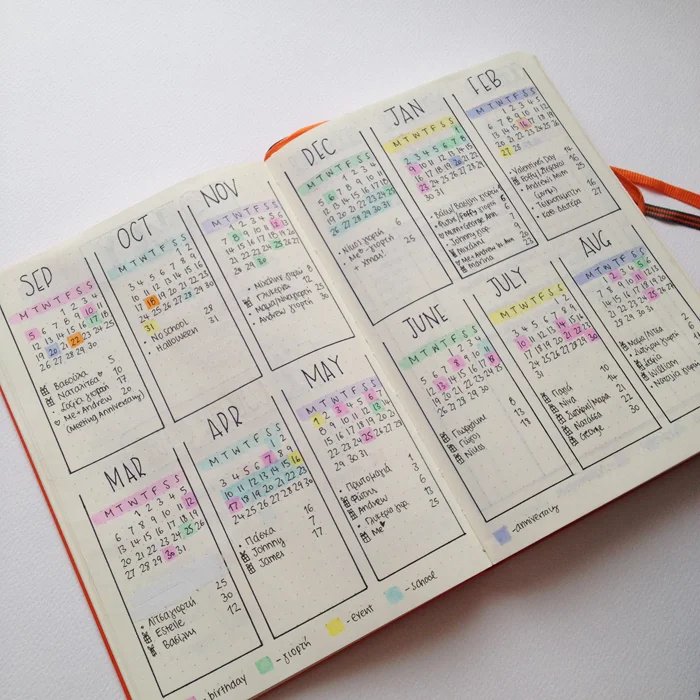 SEP
M T W T F S S
1 2 3 4
5 6 7 8 9 10 11
12 13 14 15 16 17 18
19 20 21 22 23 24 25
26 27 28 29 30
Βασούλα 5
Ναταλίτσα 10
Σοφία γιορτή 17
Me + Andrew 20
(Meeting Anniversary)
OCT
M T W T F S S
1 2
3 4 5 6 7 8 9
10 11 12 13 14 15 16
17 18 19 20 21 22 23
24 25 26 27 28 29 30
31
• No School 28
• Halloween 31
NOV
M T W T F S S
1 2 3 4 5 6
7 8 9 10 11 12 13
14 15 16 17 18 19 20
21 22 23 24 25 26 27
28 29 30
γιορτή 8
Γλυκερία 12
25
• Andrew γιορτή 30
MAR
M T W T F S S
1 2 3 4 5
6 7 8 9 10 11 12
13 14 15 16 17 18 19
20 21 22 23 24 25 26
27 28 29 30 31
• Λίτσα γιορτή 25
Estelle 30
Βασίλης 12
APR
M T W T F S S
1 2
3 4 5 6 7 8 9
10 11 12 13 14 15 16
17 18 19 20 21 22 23
24 25 26 27 28 29 30
• Πάσχα 16
Johnny 7
James 17
MAY
M T W T F S S
1 2 3 4 5 6 7
8 9 10 11 12 13 14
15 16 17 18 19 20 21
22 23 24 25 26 27 28
29 30 31
• Πρωτομαγιά 1
Φώτης 3
Andrew 6
• Γλυκερία γιορ. 13
Me 25
• birthday
- γιορτή
- event
- school
DEC
M T W T F S S
1 2 3 4
5 6 7 8 9 10 11
12 13 14 15 16 17 18
19 20 21 22 23 24 25
26 27 28 29 30 31
• Νίκος γιορτή 6
• Me γιορτή
+ Xmas! 25
JAN
M T W T F S S
1
2 3 4 5 6 7 8
9 10 11 12 13 14 15
16 17 18 19 20 21 22
23 24 25 26 27 28 29
30 31
γιορτή
Ann
• Johnny γιορ.
Me + Andrew
Marina
FEB
M T W T F S S
1 2 3 4 5
6 7 8 9 10 11 12
13 14 15 16 17 18 19
20 21 22 23 24 25 26
27 28
• Valentine's Day 14
Andrew's Mum
• Τσικνοπέμπτη 16
• Καθ. Δευτέρα 27
JUNE
M T W T F S S
1 2 3 4
5 6 7 8 9 10 11
12 13 14 15 16 17 18
19 20 21 22 23 24 25
26 27 28 29 30
8
13
Νίκος 18
JULY
M T W T F S S
1 2
3 4 5 6 7 8 9
10 11 12 13 14 15 16
17 18 19 20 21 22 23
24 25 26 27 28 29 30
31
10
Νίνα 14
21
Νατάσσα 22
George 30
AUG
M T W T F S S
1 2 3 4 5 6
7 8 9 10 11 12 13
14 15 16 17 18 19 20
21 22 23 24 25 26 27
28 29 30 31
γιορτή
Σοφία
William
γιορτή
- anniversary